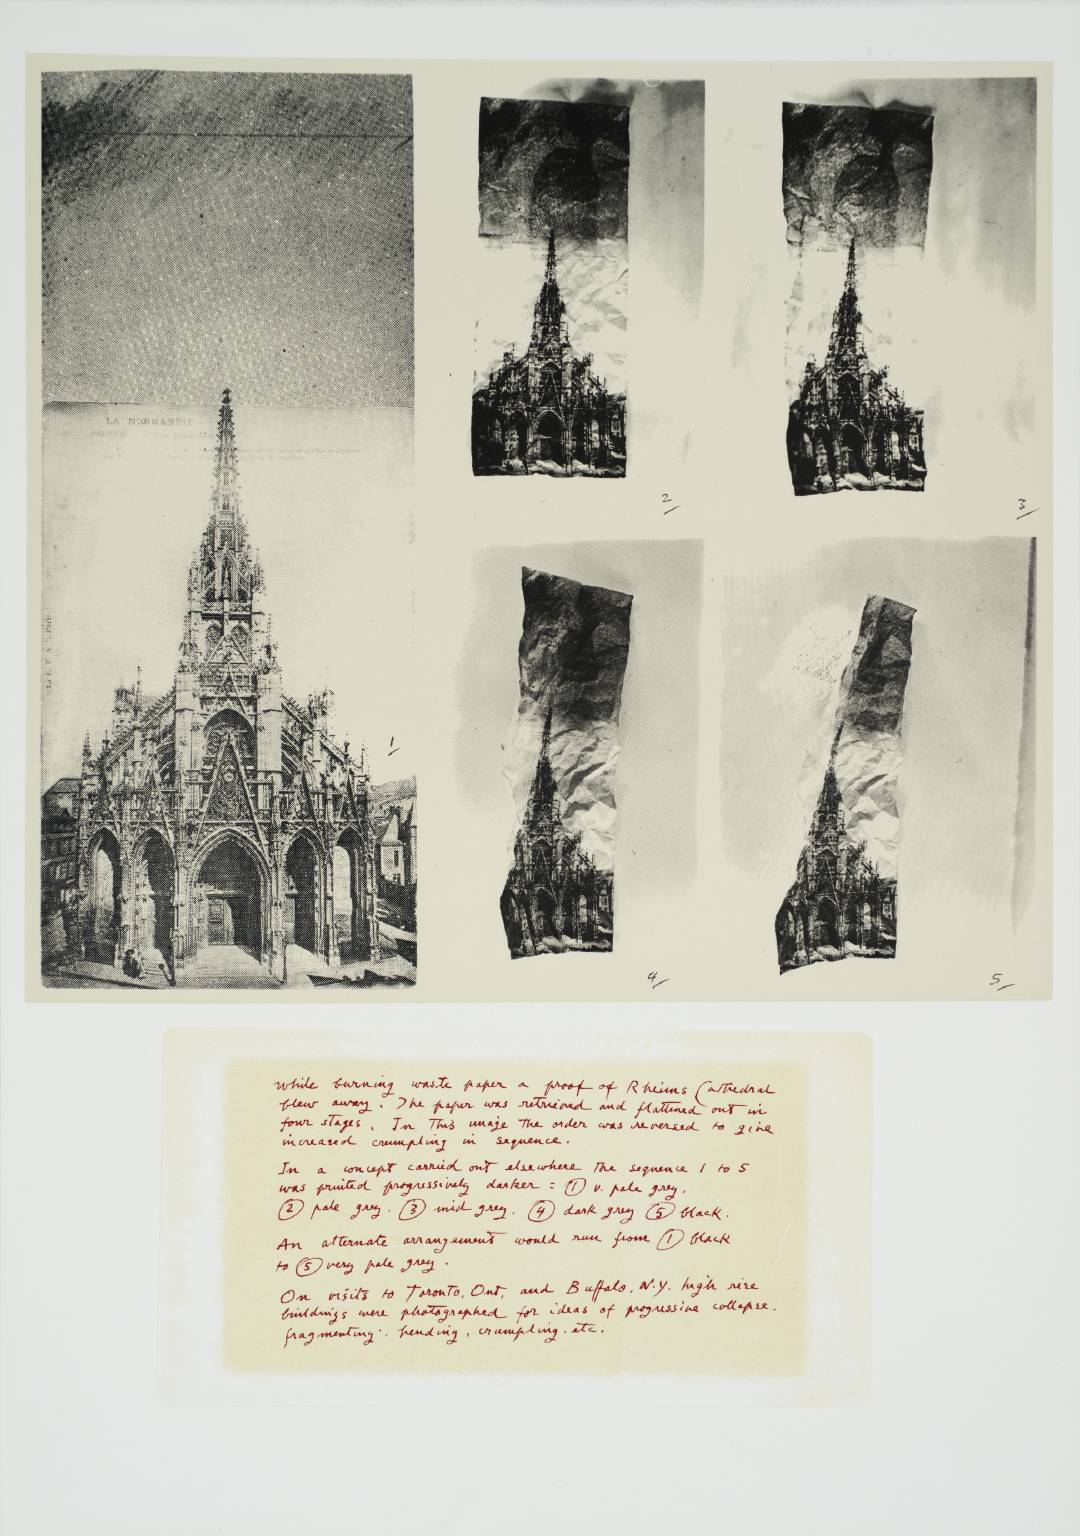 LA NORMANDIE
1
2
3
4
5
while burning waste paper a proof of Rheims Cathedral
blew away. The paper was retrieved and flattened out in
four stages. In this image the order was reversed to give
increased crumpling in sequence.
In a concept carried out elsewhere the sequence 1 to 5
was printed progressively darker = 1 v. pale grey.
2 pale grey. 3 mid grey. 4 dark grey 5 black.
An alternate arrangement would run from 1 black
to 5 very pale grey.
On visits to Toronto, Ont, and Buffalo, N.Y. high rise
buildings were photographed for ideas of progressive collapse.
fragmenting. bending, crumpling. etc.